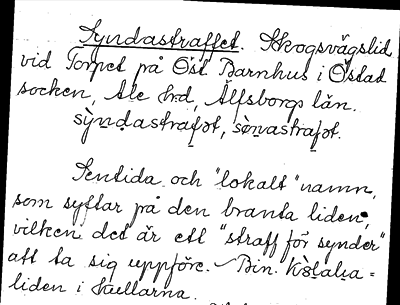 Syndastraffet. Skogsvägslid
vid Torpet på Öst. Barnhus i Östad
socken, Ale hd, Älfsborgs län.
sỳn̲d̲astrafət, sòn̲astrafət.
Sentida och "lokalt" namn,
som syftar på den branta liden,
vilken det är ett "straff för synder"
att ta sig uppför. – Bin.
liden i